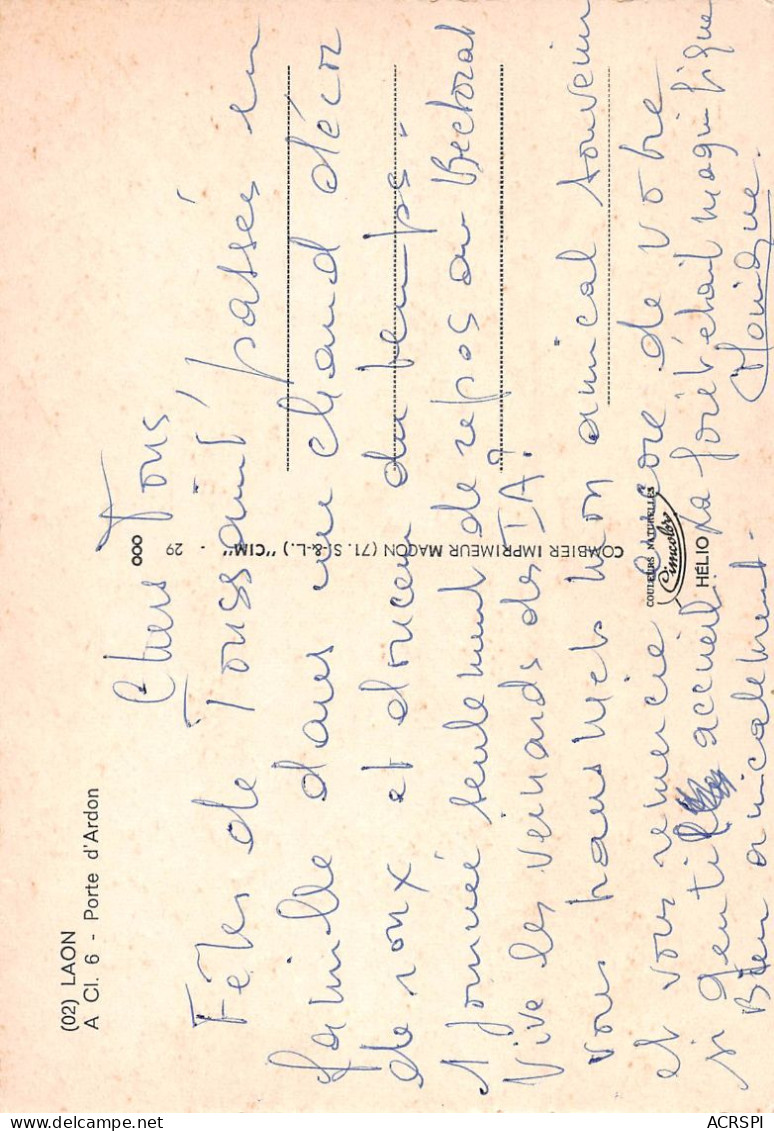 (02) LAON
A Cl. 6 - Porte d'Ardon
Chers Tous,
Fêtes de Toussaint passées en
famille dans un chaud décor
de roux et douceur du temps -
1 journée seulement de repos au Rectorat
Vive les veinards des IA!
Vous transmets mon amical souvenir
et vous remercie encore de votre
si gentil accueil. La forêt était magnifique
Bien amicalement -
Monique.
000
COMBIER IMPRIMEUR MACON (71. S.-&-L.) "CIM" - 29
COULEURS NATURELLES
Cimcolor
HÉLIO
ACRSPI